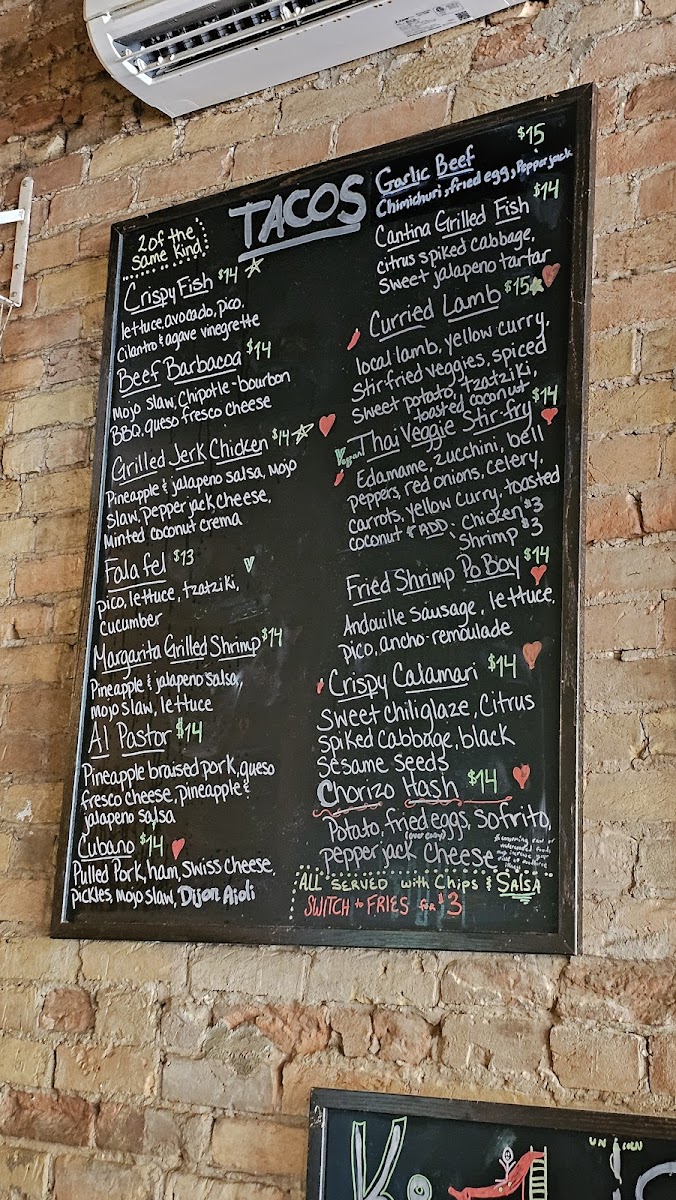 TACOS
2 of the
same kind
Crispy Fish $14
lettuce, avocado, pico,
Cilantro & agave vinegrette
Beef Barbacoa $14
Mojo slaw, Chipotle-bourbon
BBQ, queso fresco cheese
Grilled Jerk Chicken $14
Pineapple & jalapeno salsa, Mojo
Slaw, pepper jack cheese,
Minted coconut crema
Falafel $13 V
pico, lettuce, tzatziki,
Cucumber
Margarita Grilled Shrimp $14
Pineapple & jalapeno salsa,
mojo slaw, lettuce
Al Pastor $14
Pineapple braised pork, queso
fresco cheese, pineapple &
jalapeno salsa
Cubano $14
Pulled Pork, ham, Swiss cheese,
pickles, mojo slaw, Dijon Aioli
Garlic Beef $15
Chimichuri, fried egg, Pepperjack
Cantina Grilled Fish $14
citrus spiked cabbage,
Sweet jalapeno tartar
Curried Lamb $15
local lamb, yellow curry,
Stir fried veggies, spiced
Sweet potato, tzatziki,
toasted coconut
Vegan! Thai Veggie Stir-fry $14
Edamame, zucchini, bell
peppers, red onions, celery,
carrots, yellow curry, toasted
coconut * ADD: Chicken $3
Shrimp $3
Fried Shrimp Po Boy $14
Andouille sausage, lettuce,
pico, ancho-remoulade
Crispy Calamari $14
Sweet chili glaze, Citrus
Spiked cabbage, black
Sesame seeds
Chorizo Hash $14
Potato, fried eggs, sofrito,
(over easy)
pepper jack cheese
* consuming raw or
undercooked foods
may increase your
risk of
illness
ALL SERVED with Chips & SALSA
SWITCH to FRIES for $3
K
UNICORN